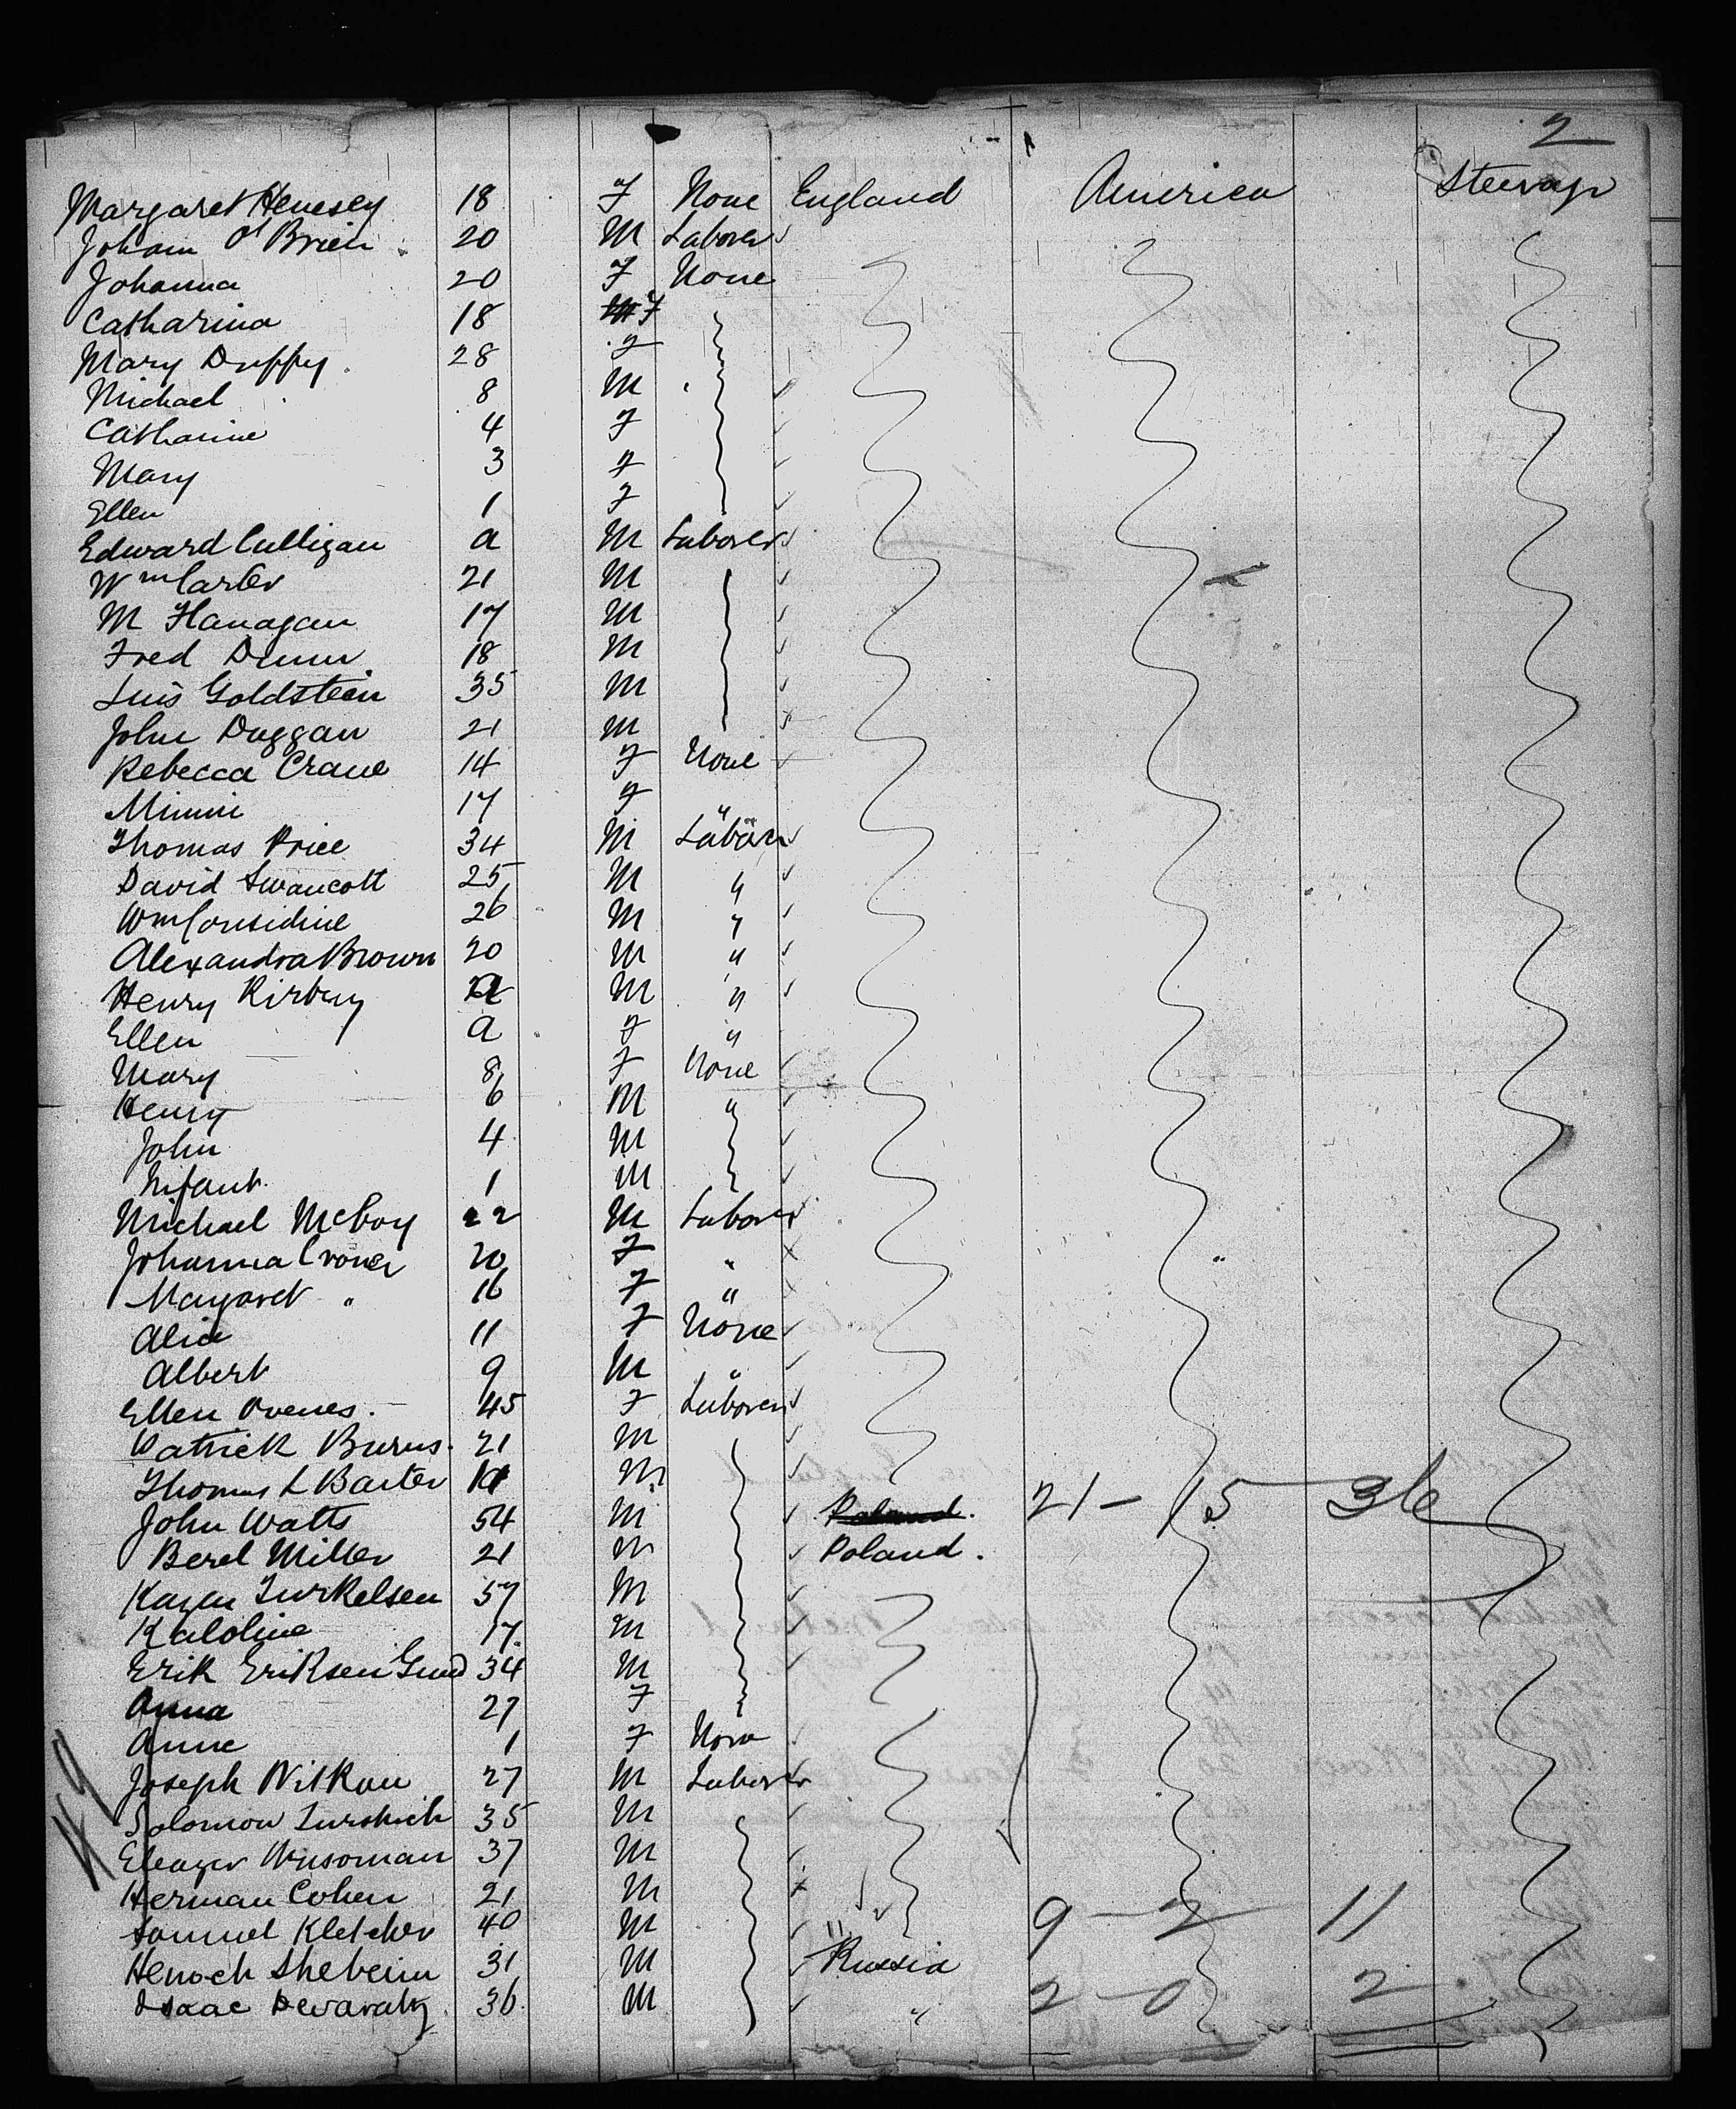 2
Margaret Henesey 18 F None England America Steerage
Joham O'Brien 20 M Laborer
Johanna 20 F None
Catharina 18 F
Mary Duffy 28 F
Michael 8 M
Catharine 4 F
Mary 3 F
Ellen 1 F
Edward Culligan a M Laborer
Wm Carter 21 M
M Flanagan 17 M
Fred 18 M
Luis Goldstein 35 M
John Duggan 21 M
Rebecca Crane 14 F None
Minnie 17 F "
Thomas Price 34 M Laborer
David Swancott 25 M "
Wm Considine 26 M "
Alexandra Brown 20 M "
Henry Kirbey a M "
Ellen a F "
Mary 8 F None
Henry 6 M "
John 4 M
Infant 1 M
Michael McCoy 22 M Laborer
Johanna Croner 20 F " "
Margaret " 16 F "
Alice 11 F None
Albert 9 M "
Ellen Ovenes 45 F Laborer
Patrick Burns 21 M
Thomas L Barter a M 21 - 15 36
John Watts 54 M
Berel Miller 21 M Poland.
Karen Turkelsen 57 M
Karoline 17 M
Erik Eriksen 34 M
Anna 27 F
Anne 1 F None
Joseph Witkou 27 M Laborer
49
Solomon 35 M
Eleazer 37 M
Herman Cohen 21 M 9 - 2 11
Samuel Kletcher 40 M "
Henoch Shebeim 31 M Russia
Isaac 36 M " 2 - 0 2